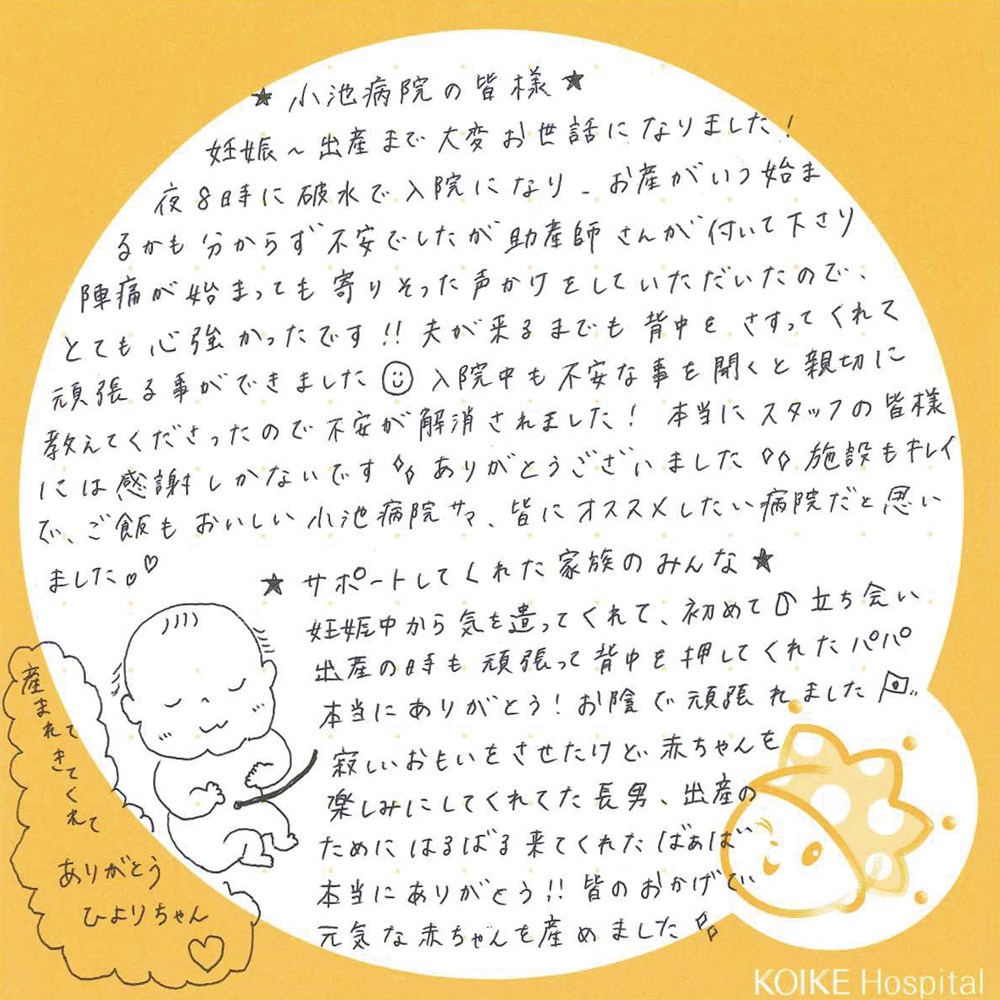 ★ 小池病院の皆様 ★
妊娠～出産まで大変お世話になりました！
夜8時に破水で入院になり、お産がいつ始ま
るかも分からず不安でしたが助産師さんが付いて下さり
陣痛が始まっても寄りそった声かけをしていただいたので、
とても心強かったです!! 夫が来るまでも背中をさすってくれて
頑張る事ができました☺ 入院中も不安な事を聞くと親切に
教えてくださったので不安が解消されました！ 本当にスタッフの皆様
には感謝しかないです ありがとうございました 施設もキレイ
で、ご飯もおいしい小池病院サマ、皆にオススメしたい病院だと思い
ました。♡
★ サポートしてくれた家族のみんな ★
妊娠中から気を遣ってくれて、初めての立ち会い
出産の時も頑張って背中を押してくれたパパ
本当にありがとう！お陰で頑張れました
寂しいおもいをさせたけど赤ちゃんを
楽しみにしてくれてた長男、出産の
ためにはるばる来てくれたばぁば
本当にありがとう!! 皆のおかげで
元気な赤ちゃんを産めました
産まれて
きてくれて
ありがとう
ひよりちゃん
♡
KOIKE Hospital